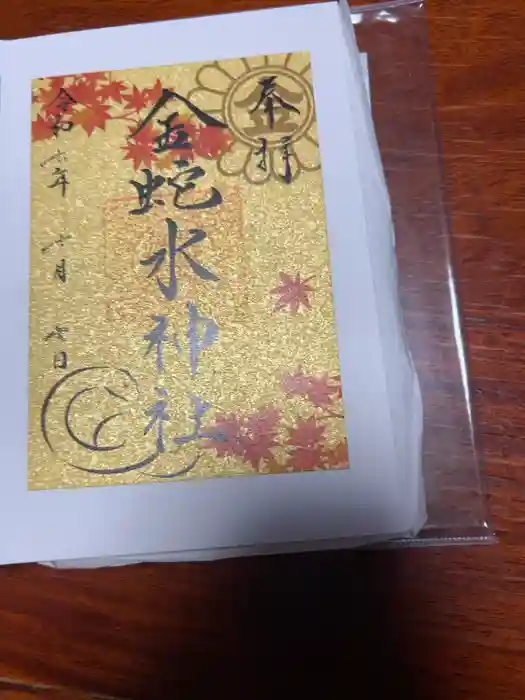 奉拝
金
金蛇水神社
令和六年 七月 七日